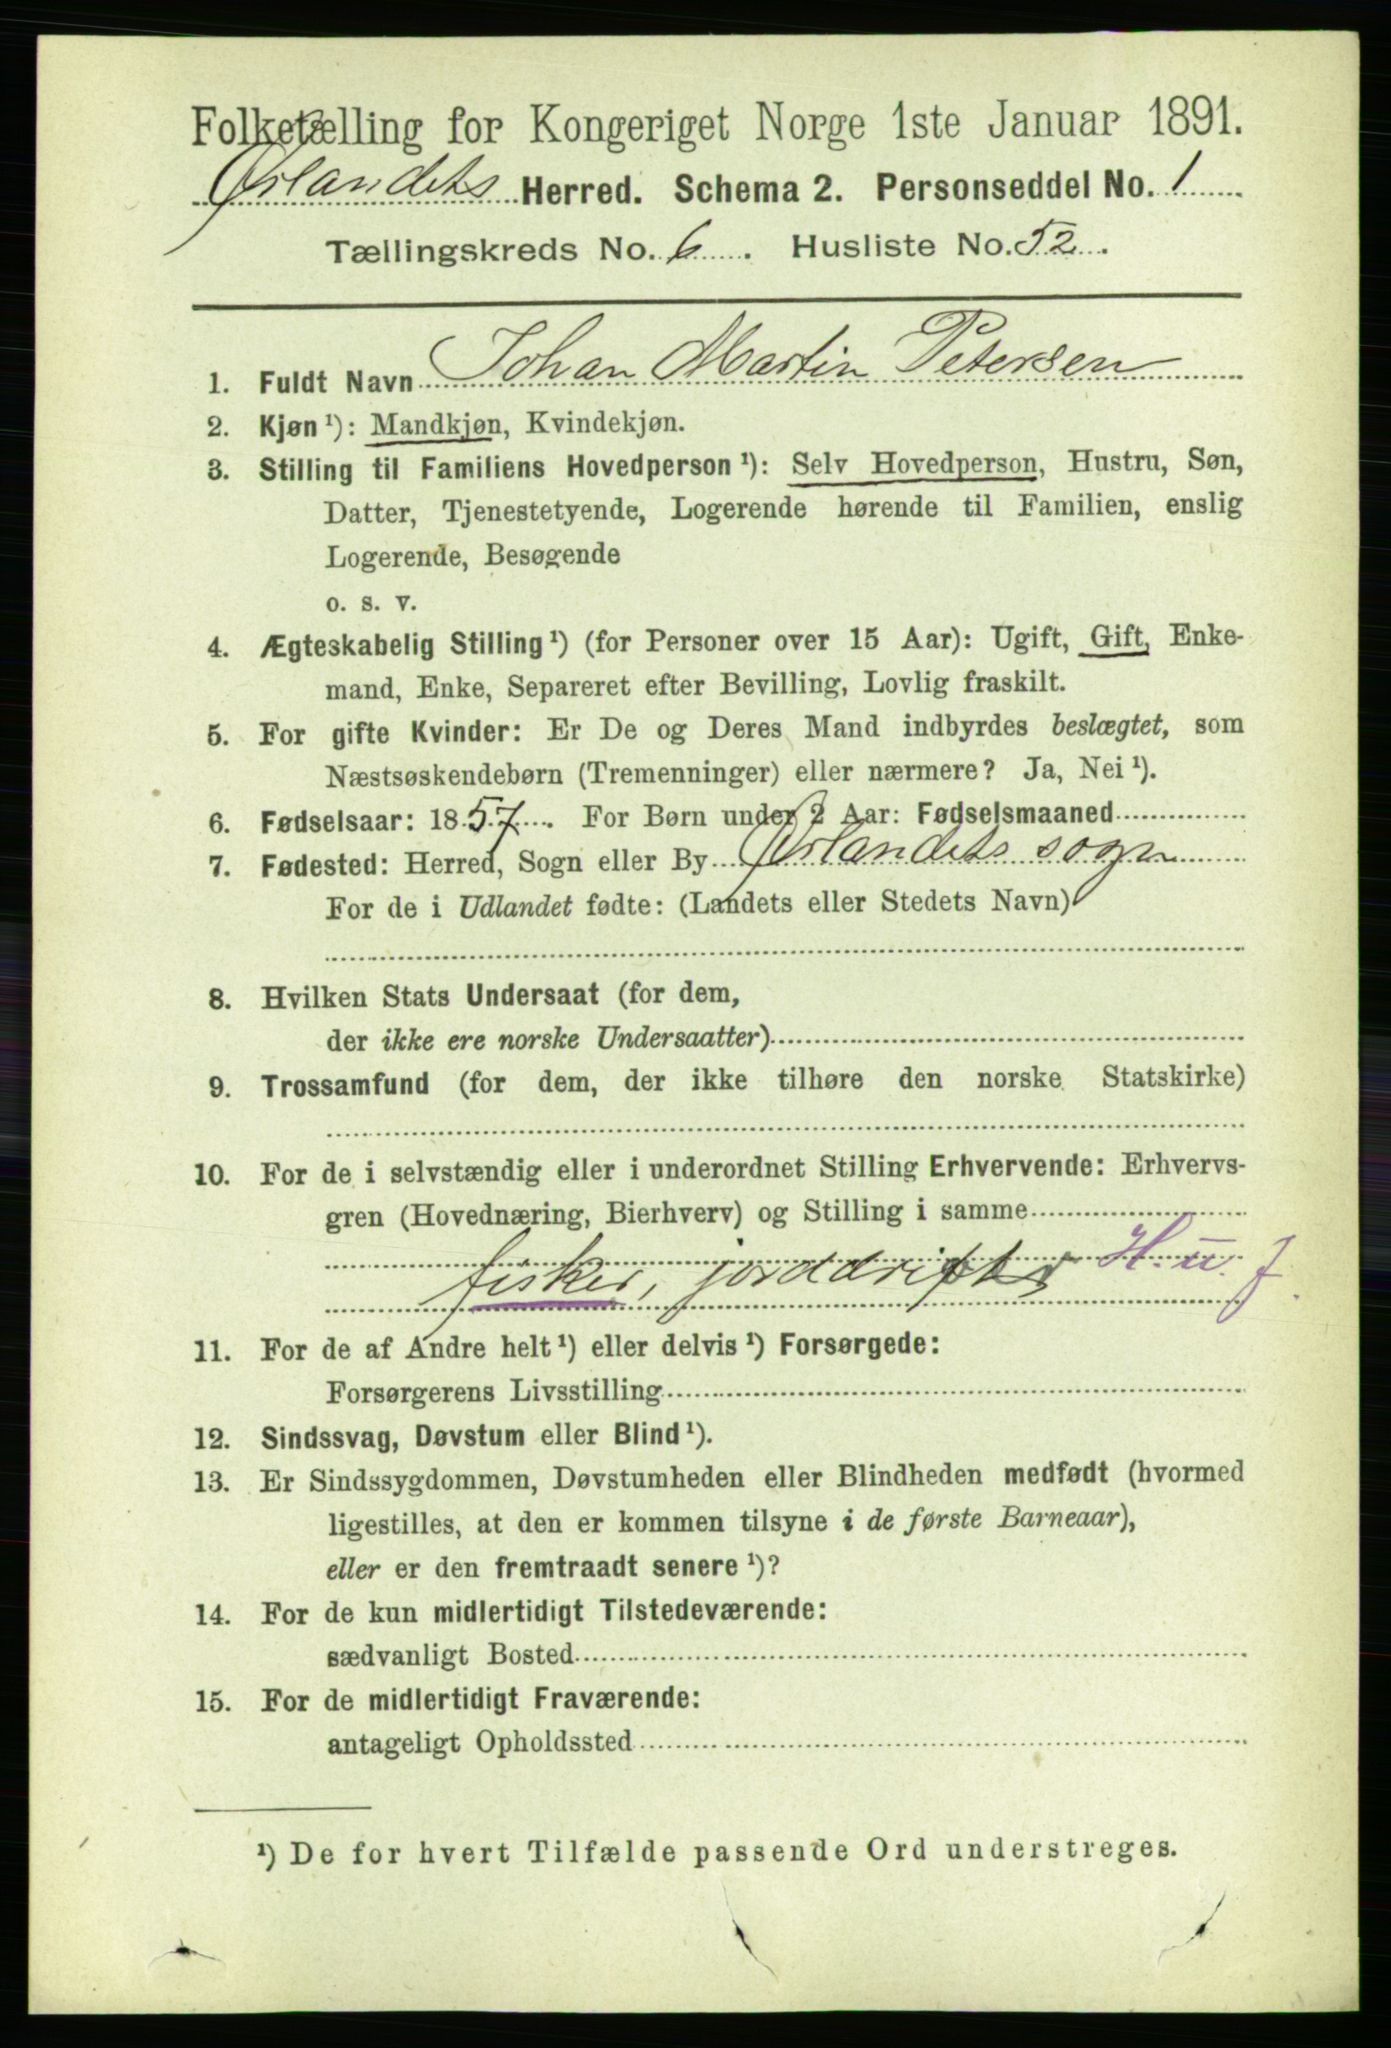 Folketælling for Kongeriget Norge 1ste Januar 1891.
Ørlandets Herred. Schema 2. Personseddel No. 1
Tællingskreds No. 6. Husliste No. 52.
1. Fuldt Navn Johan Martin Petersen
2. Kjøn ¹): Mandkjøn, Kvindekjøn.
3. Stilling til Familiens Hovedperson ¹): Selv Hovedperson, Hustru, Søn,
Datter, Tjenestetyende, Logerende hørende til Familien, enslig
Logerende, Besøgende
o. s. v.
4. Ægteskabelig Stilling ¹) (for Personer over 15 Aar): Ugift, Gift, Enke-
mand, Enke, Separeret efter Bevilling, Lovlig fraskilt.
5. For gifte Kvinder: Er De og Deres Mand indbyrdes beslægtet, som
Næstsøskendebørn (Tremenninger) eller nærmere? Ja, Nei ¹).
6. Fødselsaar: 1857. For Børn under 2 Aar: Fødselsmaaned
7. Fødested: Herred, Sogn eller By Ørlandets sogn
For de i Udlandet fødte: (Landets eller Stedets Navn)
8. Hvilken Stats Undersaat (for dem,
der ikke ere norske Undersaatter)
9. Trossamfund (for dem, der ikke tilhøre den norske Statskirke)
10. For de i selvstændig eller i underordnet Stilling Erhvervende: Erhvervs-
gren (Hovednæring, Bierhverv) og Stilling i samme
fisker, jorddrift H. u. J.
11. For de af Andre helt ¹) eller delvis ¹) Forsørgede:
Forsørgerens Livsstilling
12. Sindssvag, Døvstum eller Blind ¹).
13. Er Sindssygdommen, Døvstumheden eller Blindheden medfødt (hvormed
ligestilles, at den er kommen tilsyne i de første Barneaar),
eller er den fremtraadt senere ¹)?
14. For de kun midlertidigt Tilstedeværende:
sædvanligt Bosted
15. For de midlertidigt Fraværende:
antageligt Opholdssted
¹) De for hvert Tilfælde passende Ord understreges.